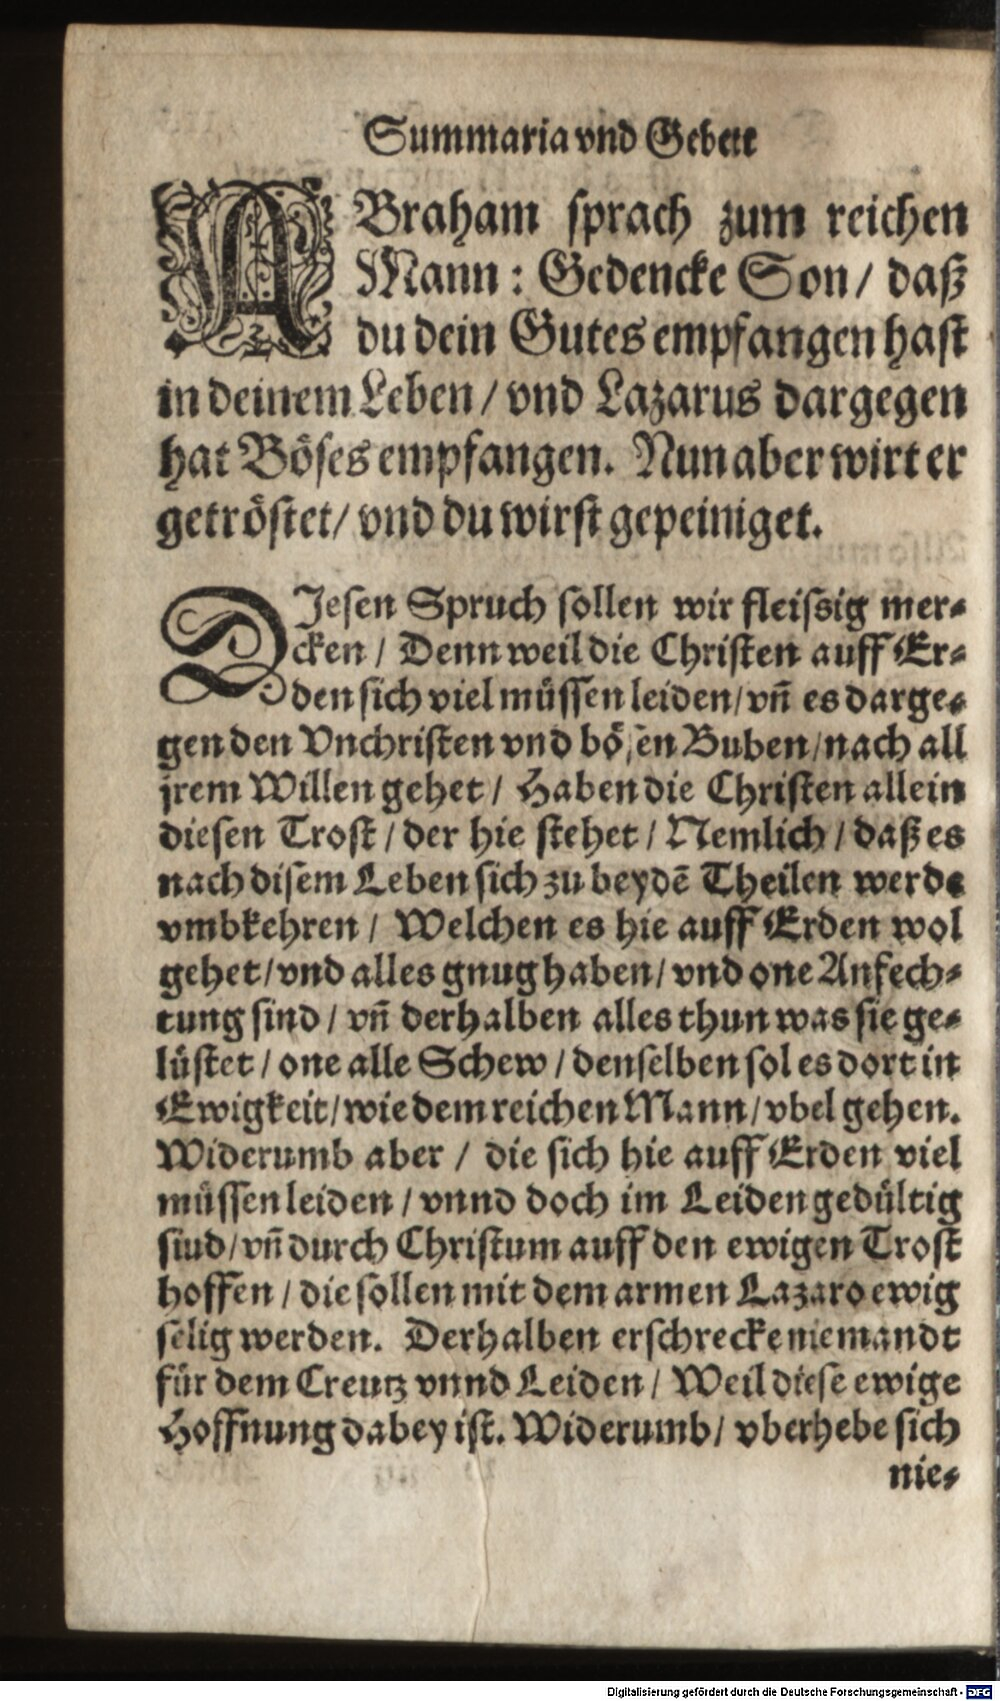 Summaria vnd Gebett
ABraham sprach zum reichen
Mann: Gedencke Son / daß
du dein Gutes empfangen hast
in deinem Leben / vnd Lazarus dargegen
hat Böses empfangen. Nun aber wirt er
getröstet / vnd du wirst gepeiniget.
DJesen Spruch sollen wir fleissig mer-
cken / Denn weil die Christen auff Er-
den sich viel müssen leiden / vñ es darge-
gen den Vnchristen vnd bösen Buben / nach all
jrem Willen gehet / Haben die Christen allein
diesen Trost / der hie stehet / Nemlich / daß es
nach disem Leben sich zu beydē Theilen werde
vmbkehren / Welchen es hie auff Erden wol
gehet / vnd alles gnug haben / vnd one Anfech-
tung sind / vñ derhalben alles thun was sie ge-
lüstet / one alle Schew / denselben sol es dort in
Ewigkeit / wie dem reichen Mann / vbel gehen.
Widerumb aber / die sich hie auff Erden viel
müssen leiden / vnnd doch im Leiden gedültig
sind / vñ durch Christum auff den ewigen Trost
hoffen / die sollen mit dem armen Lazaro ewig
selig werden. Derhalben erschrecke niemandt
für dem Creutz vnnd Leiden / Weil diese ewige
Hoffnung dabey ist. Widerumb / vberhebe sich
nie-
Digitalisierung gefördert durch die Deutsche Forschungsgemeinschaft - DFG